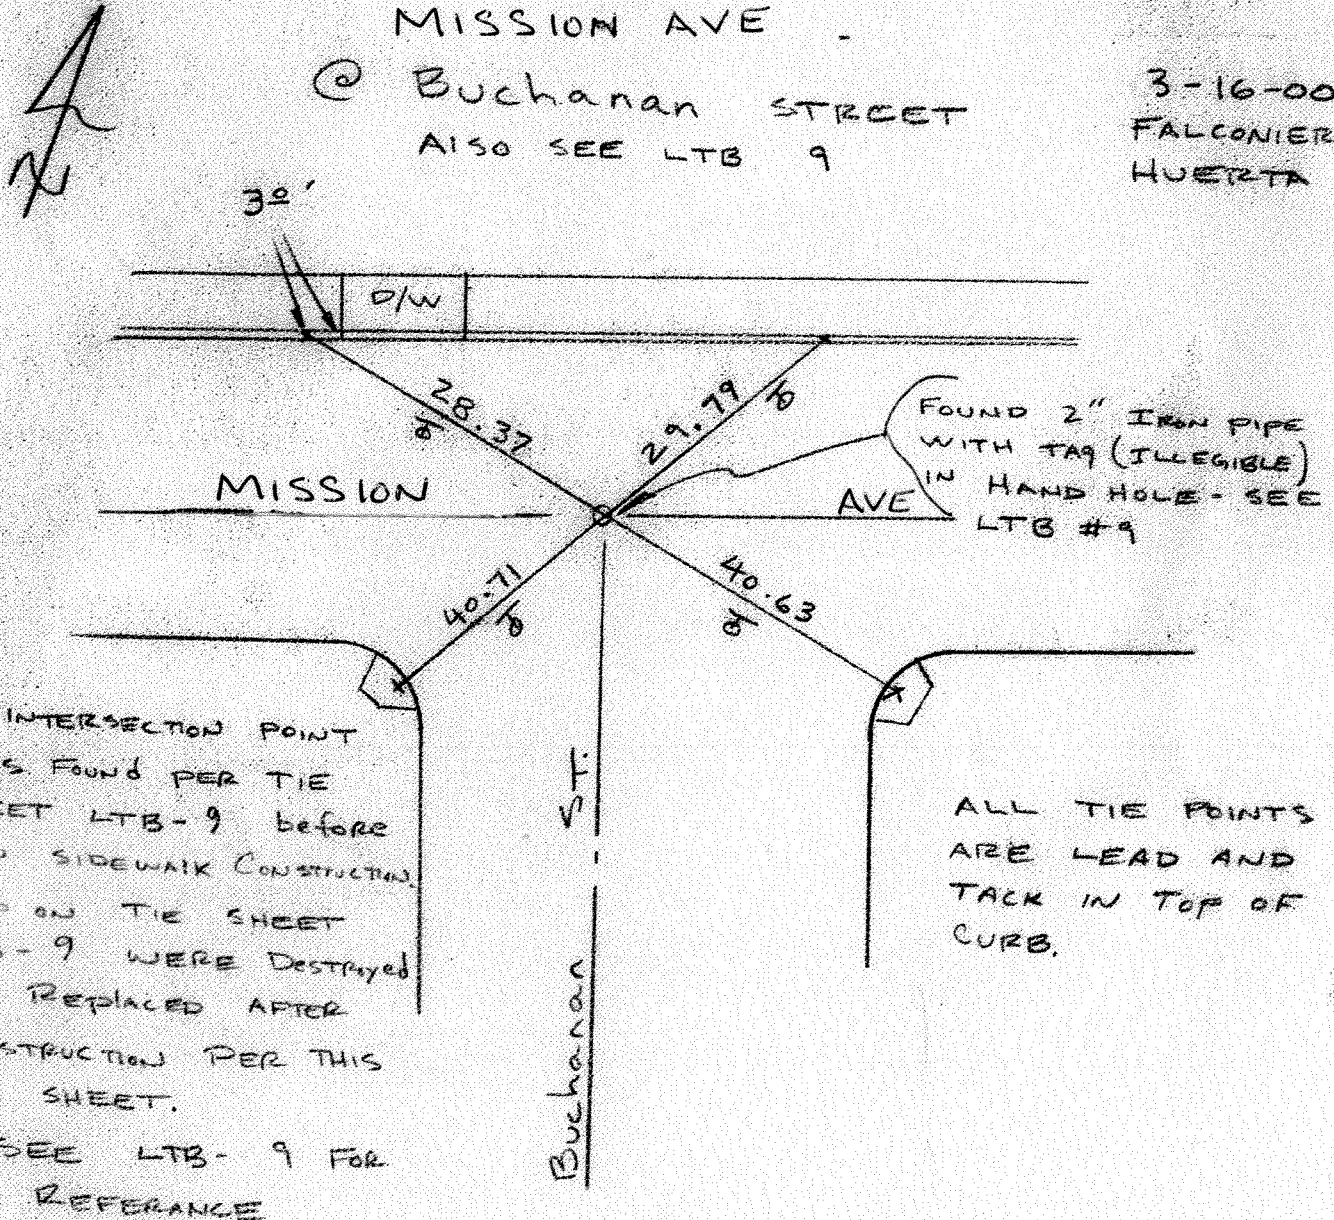 MISSION AVE
@ Buchanan STREET
ALSO SEE LTB 9
3-16-00
FALCONIER
HUERTA
N
3º'
D/W
28.37
29.79
FOUND 2" IRON PIPE
WITH TAG (ILLEGIBLE)
IN HAND HOLE - SEE
LTB #9
MISSION AVE
40.71
40.63
INTERSECTION POINT
S FOUND PER TIE
EET LTB-9 before
SIDEWALK CONSTRUCTION.
ON TIE SHEET
-9 WERE Destroyed
REPLACED AFTER
STRUCTION PER THIS
SHEET.
SEE LTB-9 FOR
REFERANCE
Buchanan ST.
ALL TIE POINTS
ARE LEAD AND
TACK IN TOP OF
CURB.